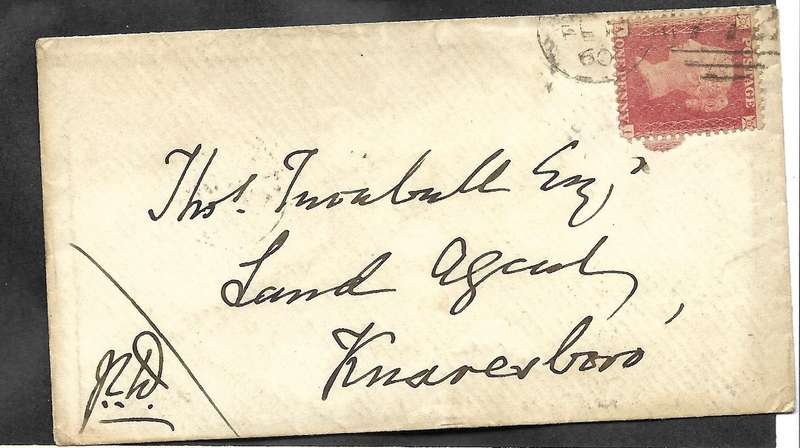 60
POSTAGE
ONE PENNY
Thos. Turnbull Esqr
Land Agent
Knaresboro'